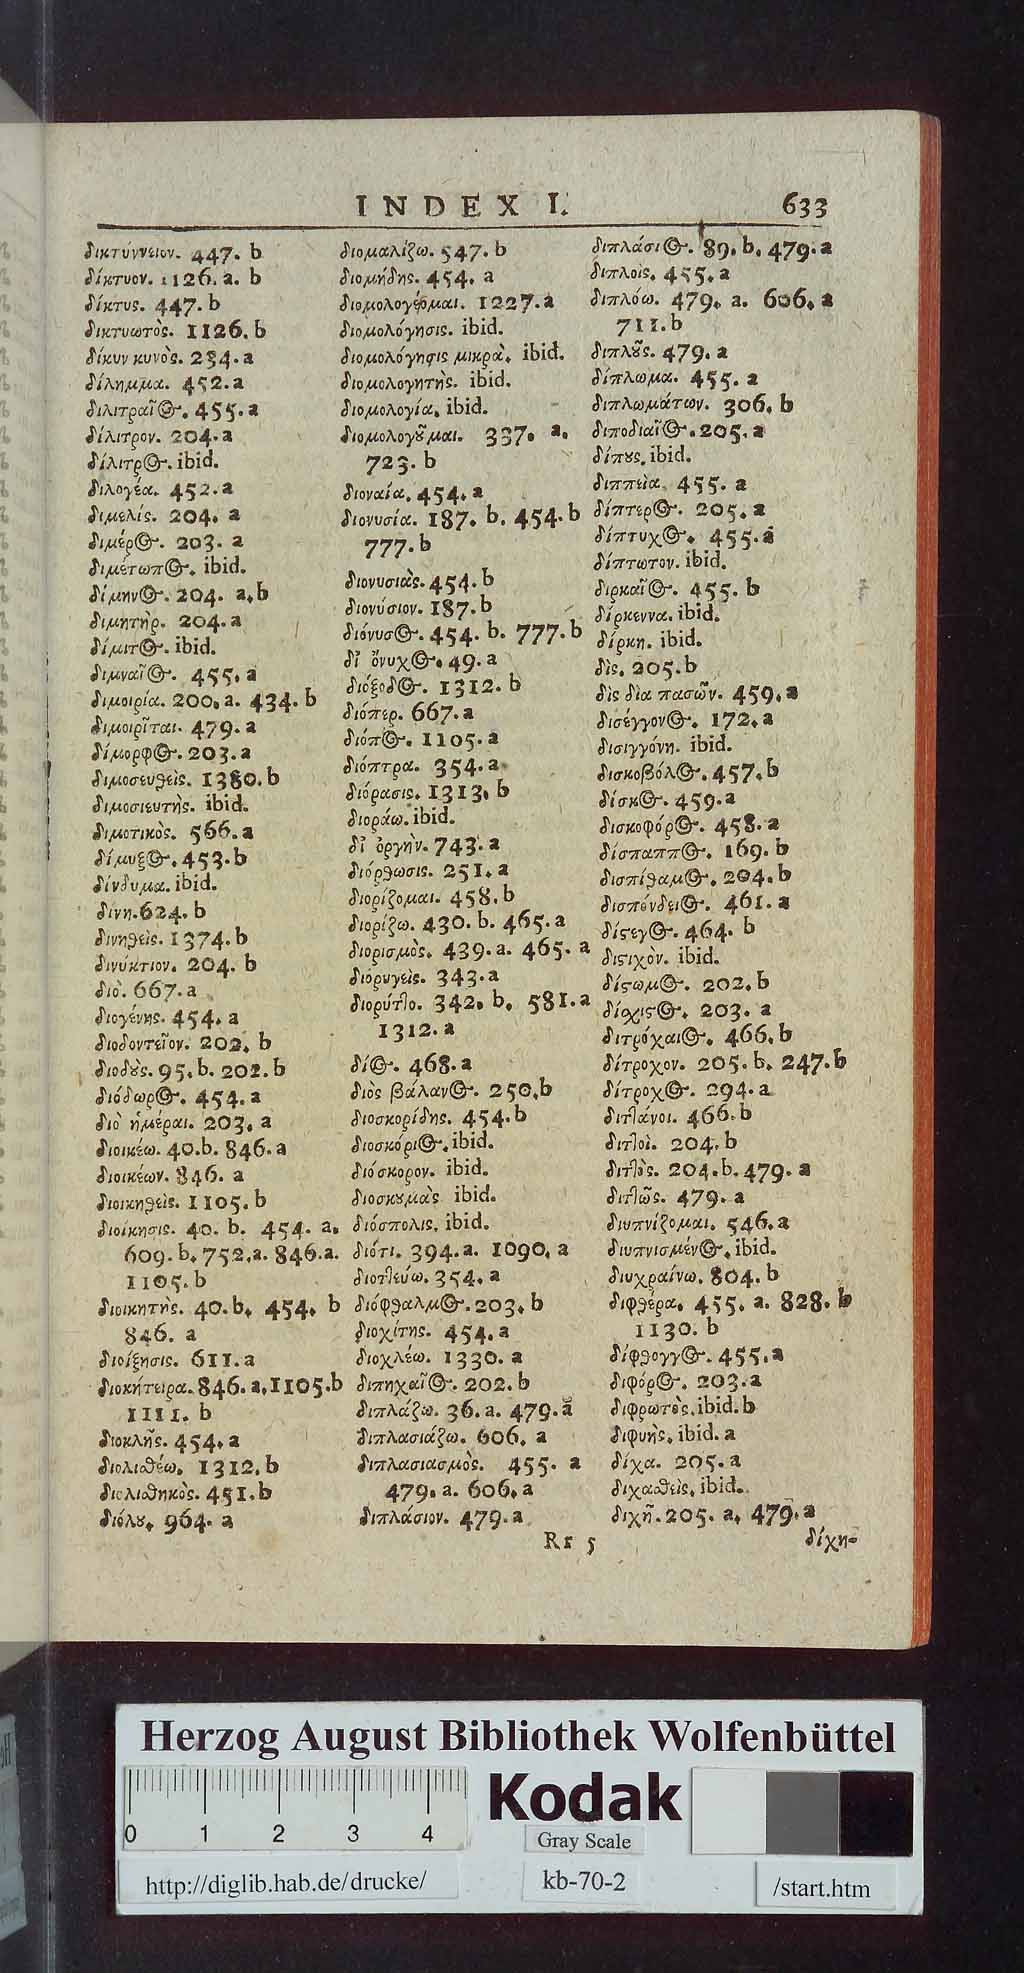 INDEX I. 633
δικτύννειον. 447. b
δίκτυον. 1126. a. b
δίκτυς. 447. b
δικτυωτὸς. 1126. b
δίκυν κυνὸς. 234. a
δίλημμα. 452. a
διλιτραῖος. 455. a
δίλιτρον. 204. a
δίλιτρος. ibid.
διλογέα. 452. a
διμελίς. 204. a
διμέρος. 203. a
διμέτωπος. ibid.
δίμηνος. 204. a. b
διμητὴρ. 204. a
δίμιτος. ibid.
διμναῖος. 455. a
διμοιρία. 200. a. 434. b
διμοιρῖται. 479. a
δίμορφος. 203. a
διμοσευθεὶς. 1380. b
διμοσιευτὴς. ibid.
διμοτικὸς. 566. a
δίμυξος. 453. b
δίνδυμα. ibid.
δινη. 624. b
δινηθεὶς. 1374. b
δινύκτιον. 204. b
διὸ. 667. a
διογένης. 454. a
διοδοντεῖον. 202. b
διοδοὺς. 95. b. 202. b
διόδωρος. 454. a
διὸ ἡμέραι. 203. a
διοικέω. 40. b. 846. a
διοικέων. 846. a
διοικηθεὶς. 1105. b
διοίκησις. 40. b. 454. a.
609. b. 752. a. 846. a.
1105. b
διοικητὴς. 40. b. 454. b
846. a
διοίξησις. 611. a
διοκήτειρα. 846. a. 1105. b
1111. b
διοκλῆς. 454. a
διολισθέω. 1312. b
διολισθηκὸς. 451. b
διόλου. 964. a
διομαλίζω. 547. b
διομήδης. 454. a
διομολογέομαι. 1227. a
διομολόγησις. ibid.
διομολόγησις μικρὰ. ibid.
διομολογητὴς. ibid.
διομολογία. ibid.
διομολογοῦμαι. 337. a.
723. b
διοναία. 454. a
διονυσία. 187. b. 454. b
777. b
διονυσιὰς. 454. b
διονύσιον. 187. b
διόνυσος. 454. b. 777. b
δἰ ὄνυχος. 49. a
διόξοδος. 1312. b
διόπερ. 667. a
διόπος. 1105. a
διόπτρα. 354. a
διόρασις. 1313. b
διοράω. ibid.
δἰ ὀργὴν. 743. a
διόρθωσις. 251. a
διορίζομαι. 458. b
διορίζω. 430. b. 465. a
διορισμὸς. 439. a. 465. a
διορυγεὶς. 343. a
διορύττο. 342. b. 581. a
1312. a
δίος. 468. a
διὸς βάλανος. 250. b
διοσκορίδης. 454. b
διοσκόριος. ibid.
διόσκορον. ibid.
διοσκουμὰς ibid.
διόσπολις. ibid.
διότι. 394. a. 1090. a
διοττεύω. 354. a
διόφθαλμος. 203. b
διοχίτης. 454. a
διοχλέω. 1330. a
διπηχαῖος. 202. b
διπλάζω. 36. a. 479. a
διπλασιάζω. 606. a
διπλασιασμὸς. 455. a
479. a. 606. a
διπλάσιον. 479. a
διπλάσιος. 89. b. 479. a
διπλοὶς. 455. a
διπλόω. 479. a. 606. a
711. b
διπλοῦς. 479. a
δίπλωμα. 455. a
διπλωμάτων. 306. b
διποδιαῖος. 205. a
δίπους. ibid.
διππεία. 455. a
δίπτερος. 205. a
δίπτυχος. 455. a
δίπτωτον. ibid.
διρκαῖος. 455. b
δίρκεννα. ibid.
δίρκη. ibid.
δὶς. 205. b
δὶς δία πασῶν. 459. a
δισέγγονος. 172. a
δισιγγόνη. ibid.
δισκοβόλος. 457. b
δίσκος. 459. a
δισκοφόρος. 458. a
δίσπαππος. 169. b
δισπίθαμος. 204. b
δισπόνδειος. 461. a
δίστεγος. 464. b
διστιχὸν. ibid.
δίστωμος. 202. b
δίσχιστος. 203. a
διτρόχαιος. 466. b
δίτροχον. 205. b. 247. b
δίτροχος. 294. a
διττάνοι. 466. b
διττοὶ. 204. b
διττὸς. 204. b. 479. a
διττῶς. 479. a
διυπνίζομαι. 546. a
διυπνισμένος. ibid.
διυχραίνω. 804. b
διφθέρα. 455. a. 828. b
1130. b
δίφθογγος. 455. a
διφόρος. 203. a
διφρωτὸς. ibid. b
διφυὴς. ibid. a
δίχα. 205. a
διχασθεὶς. ibid.
διχῆ. 205. a. 479. a
Rr 5 δίχη-
Herzog August Bibliothek Wolfenbüttel
0 1 2 3 4
Kodak
Gray Scale
http://diglib.hab.de/drucke/ kb-70-2 /start.htm